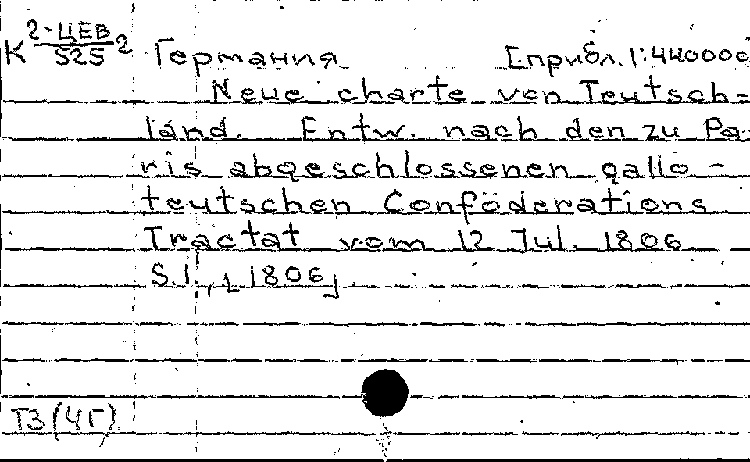 К 2-ЦЕВ/525 2 Германия [прибл. 1:440000
Neue charte von Teutsch=
land. Entw. nach den zu Pa-
ris abgeschlossenen gallo-
teutschen Conföderations
Tractat vom 12 Jul. 1806
S.l., [1806].
Т3(4Г)